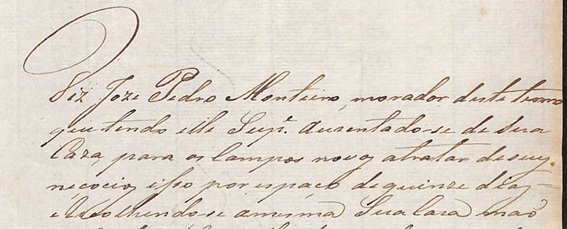 Diz Joze Pedro Monteiro, morador deste termo
que tendo elle Supe. auzentado-se de Sua
Caza para os Campos novos atratar de seuz
negocioz, isso por espaço de quinze diaz
e recolhendo-se amesma Sua Caza